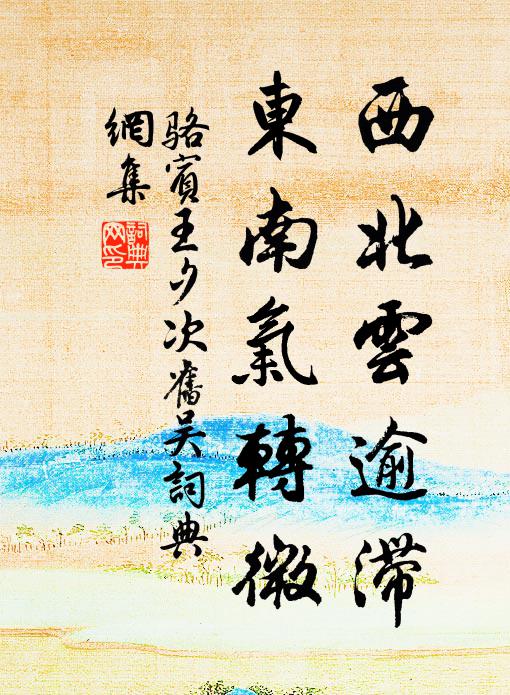 西北雲逾滯
東南氣轉微
駱賓王夕次舊吳詞典
網集
詞典網印